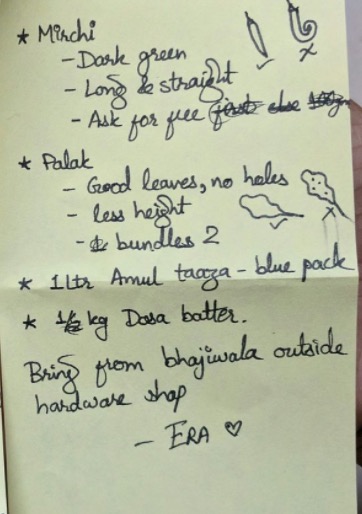 * Mirchi
- Dark green
- Long & straight
- Ask for free
* Palak
- Good leaves, no holes
- less height
- bundles 2
* 1 ltr Amul taaza - blue pack
* 1/2 kg Dosa batter.
Bring from bhajiwala outside
hardware shop
- ERA ♡